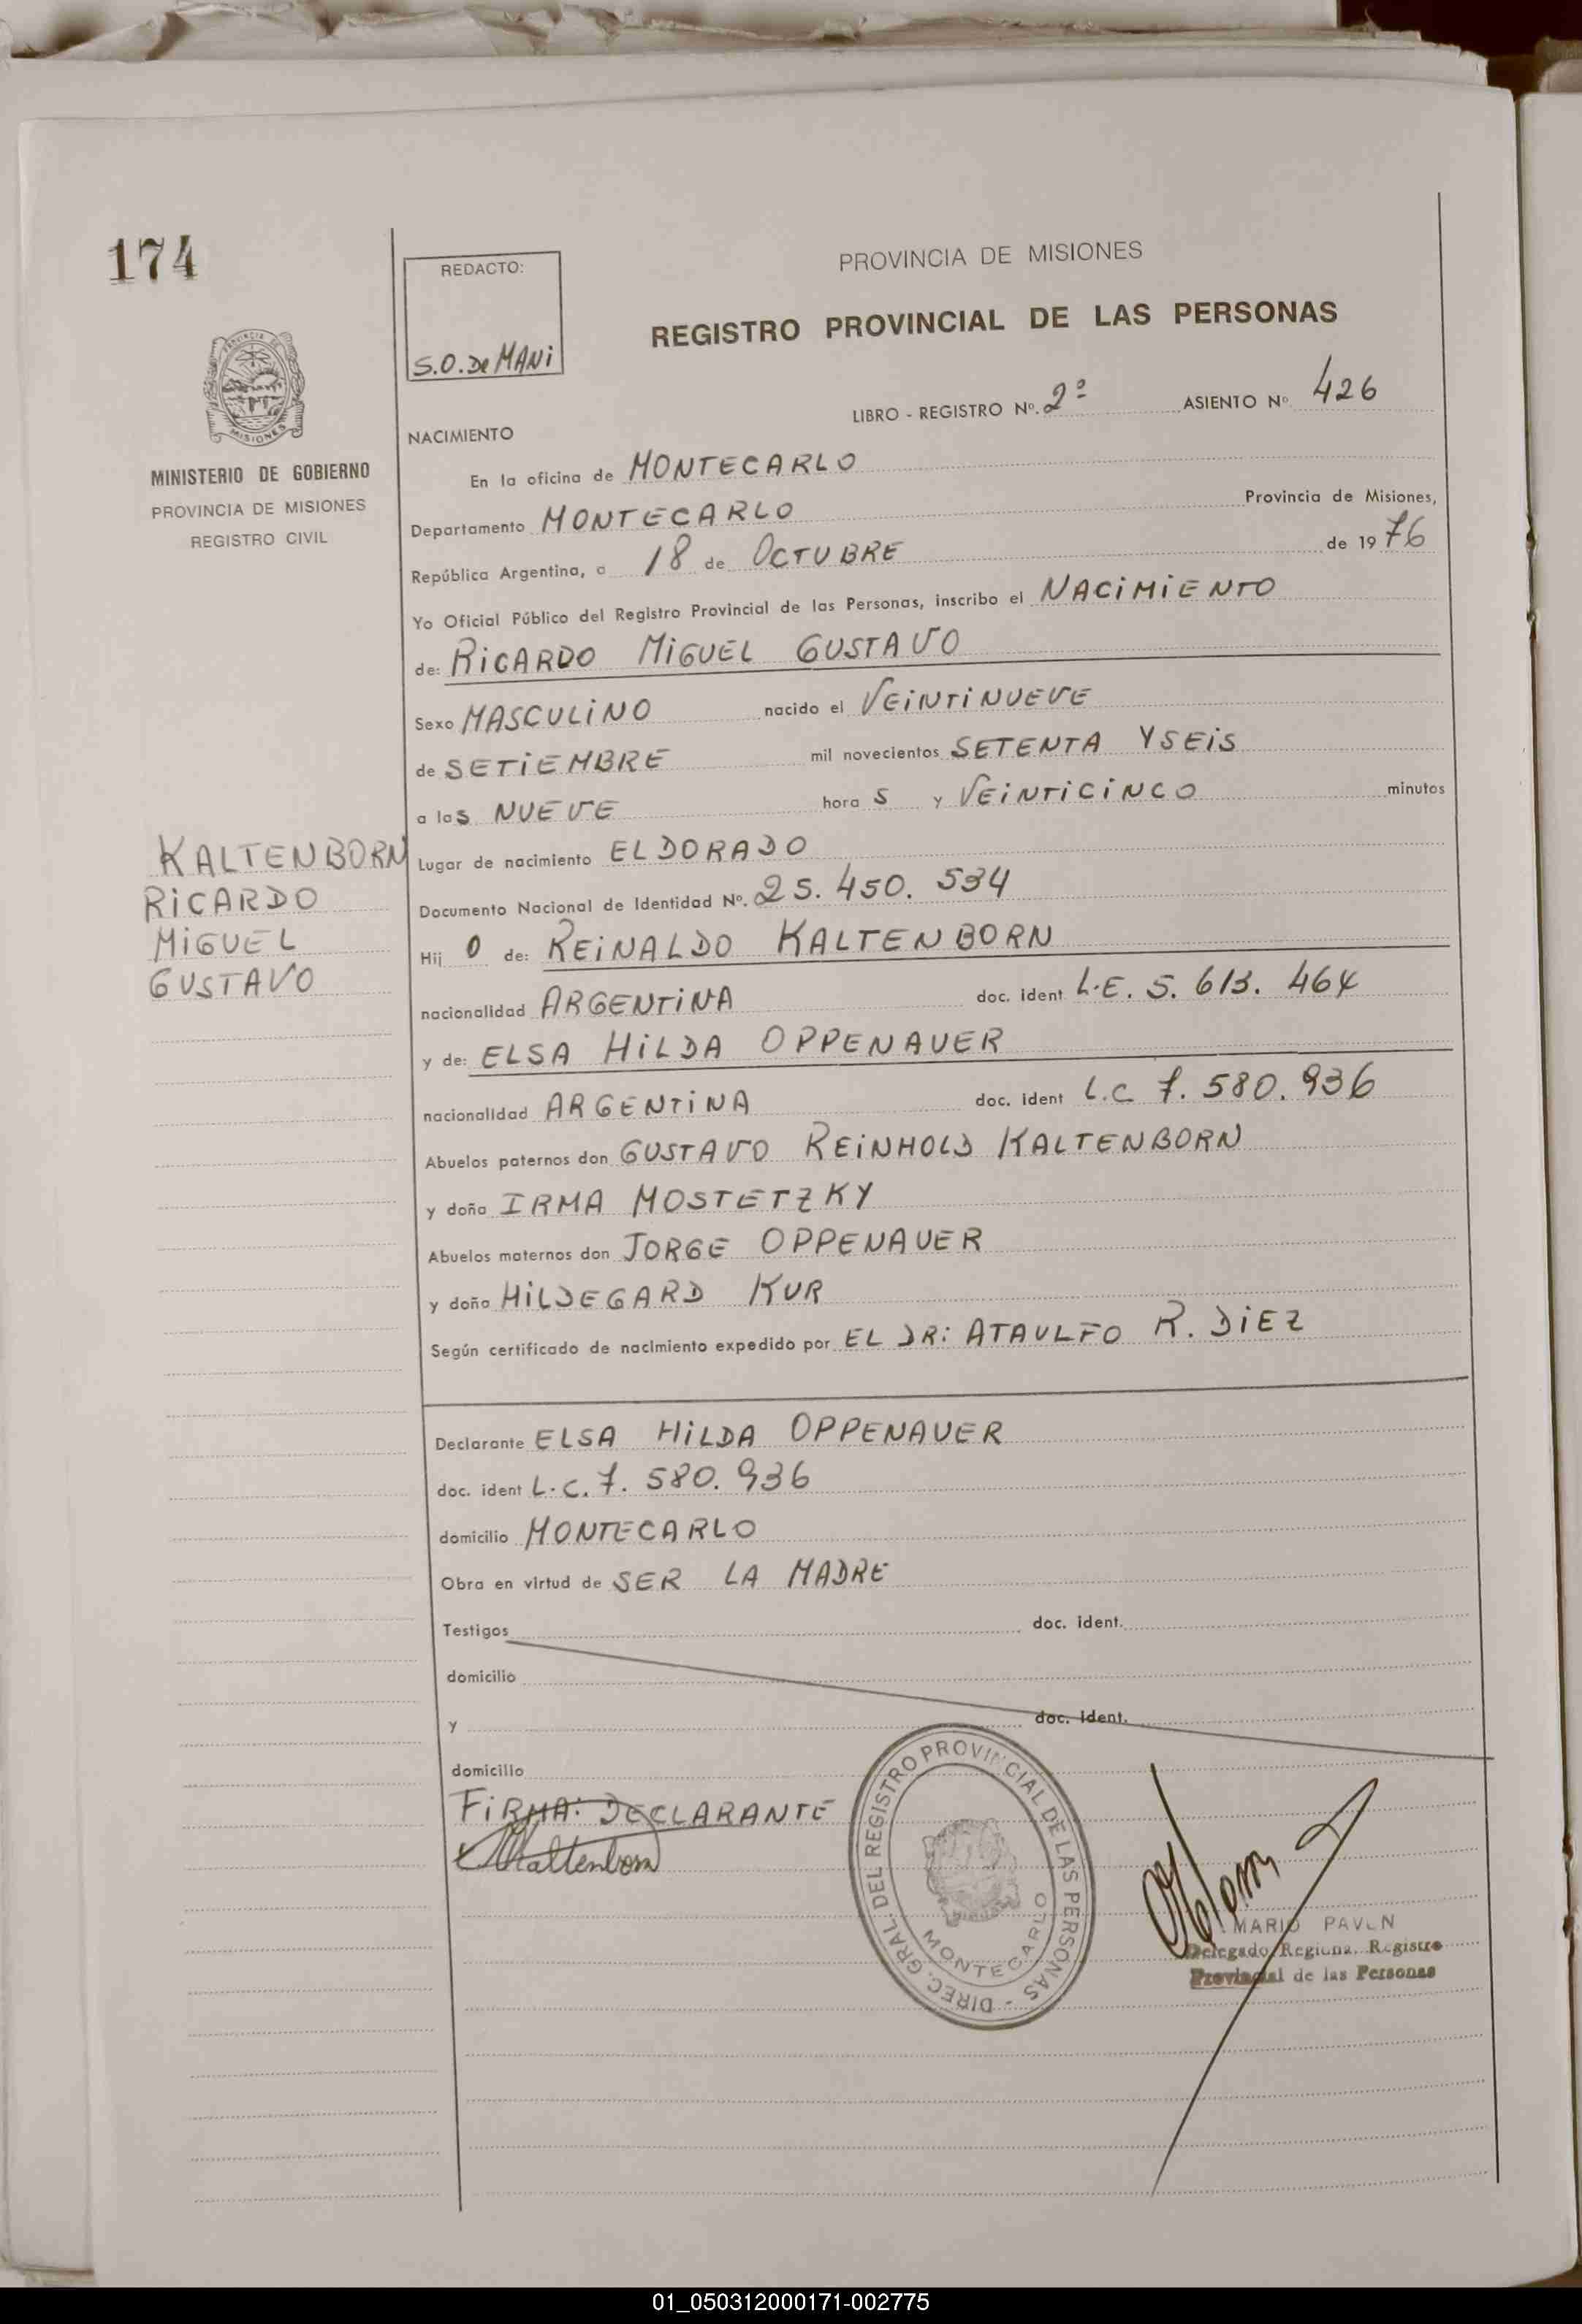 174
REDACTO:
S.O. De MANi
PROVINCIA DE MISIONES
REGISTRO PROVINCIAL DE LAS PERSONAS
LIBRO - REGISTRO Nº. 2º ASIENTO Nº 426
MISIONES
MINISTERIO DE GOBIERNO
PROVINCIA DE MISIONES
REGISTRO CIVIL
NACIMIENTO
En la oficina de MONTECARLO
Departamento MONTECARLO Provincia de Misiones,
República Argentina, a 18 de OCTUBRE de 1976
Yo Oficial Público del Registro Provincial de las Personas, inscribo el NACiMiENTO
de: RiCARDO MiGUEL GUSTAVO
Sexo MASCULiNO nacido el VEiNTiNUEVE
de SETiEMBRE mil novecientos SETENTA Y SEiS
a las NUEVE hora S y VEiNTiCiNCO minutos
KALTENBORN
RiCARDO
MiGUEL
GUSTAVO
Lugar de nacimiento ELDORADO
Documento Nacional de Identidad Nº. 25. 450. 534
Hij O de: REiNALDO KALTENBORN
nacionalidad ARGENTiNA doc. ident L.E. 5. 613. 464
y de: ELSA HiLDA OPPENAUER
nacionalidad ARGENTiNA doc. ident L.C 7. 580. 936
Abuelos paternos don GUSTAVO REiNHOLD KALTENBORN
y doña IRMA MOSTETZKY
Abuelos maternos don JORGE OPPENAUER
y doña HiLDEGARD KUR
Según certificado de nacimiento expedido por EL DR: ATAULFO R. DiEZ
Declarante ELSA HiLDA OPPENAUER
doc. ident L.C. 7. 580. 936
domicilio MONTECARLO
Obra en virtud de SER LA MADRE
Testigos doc. ident.
domicilio
y doc. ident.
domicilio
FiRMA: DECLARANTE
Kaltenborn
DIREC. GRAL. DEL REGISTRO PROVINCIAL DE LAS PERSONAS -
MONTECARLO
MARIO
Delegado Regional Registro
Provincial de las Personas
01_050312000171-002775